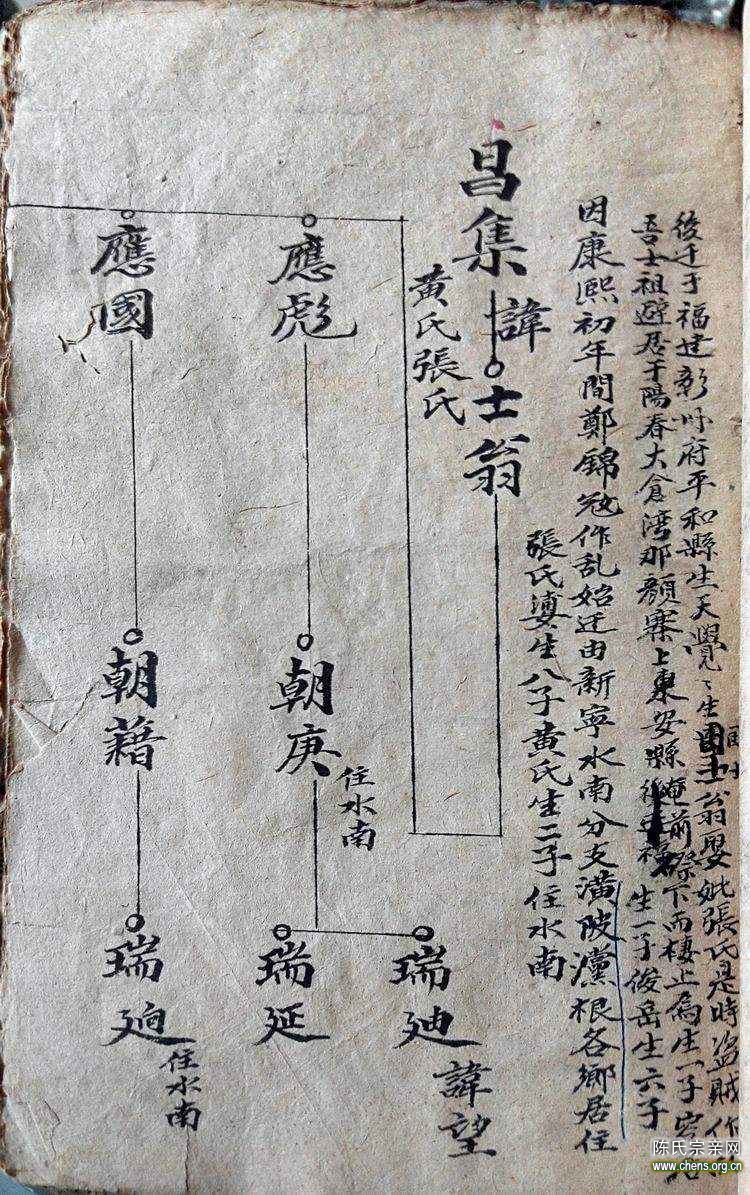 後迁于福建彰州府平和縣生天覺〻生國士翁娶妣張氏是時盗賊作
國士
吾士祖避居于陽春大倉湾那顔寨上東安縣 前 下而棲止為生一子
生一子俊岳生六子
因康熙初年間鄭錦 作乱始迁由新寧水南分支潢陂灙根各鄉居住
張氏 生八子黄氏生二子住水南
昌集
諱
士翁
黄氏張氏
應彪
朝庚
住水南
瑞廸
諱望
瑞延
應國
朝藉
瑞廻
住水南
陈氏宗亲网
www.chens.org.cn